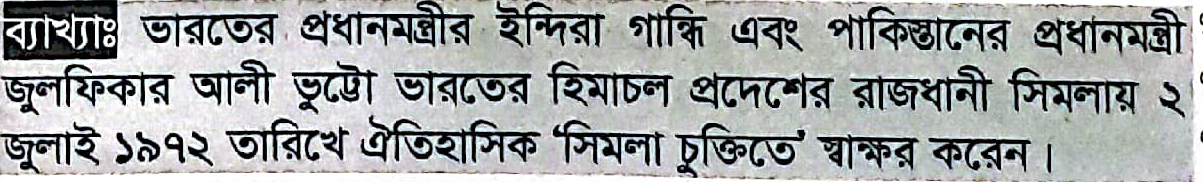 ব্যাখ্যাঃ ভারতের প্রধানমন্ত্রীর ইন্দিরা গান্ধি এবং পাকিস্তানের প্রধানমন্ত্রী
জুলফিকার আলী ভুট্টো ভারতের হিমাচল প্রদেশের রাজধানী সিমলায় ২
জুলাই ১৯৭২ তারিখে ঐতিহাসিক ‘সিমলা চুক্তিতে’ স্বাক্ষর করেন।